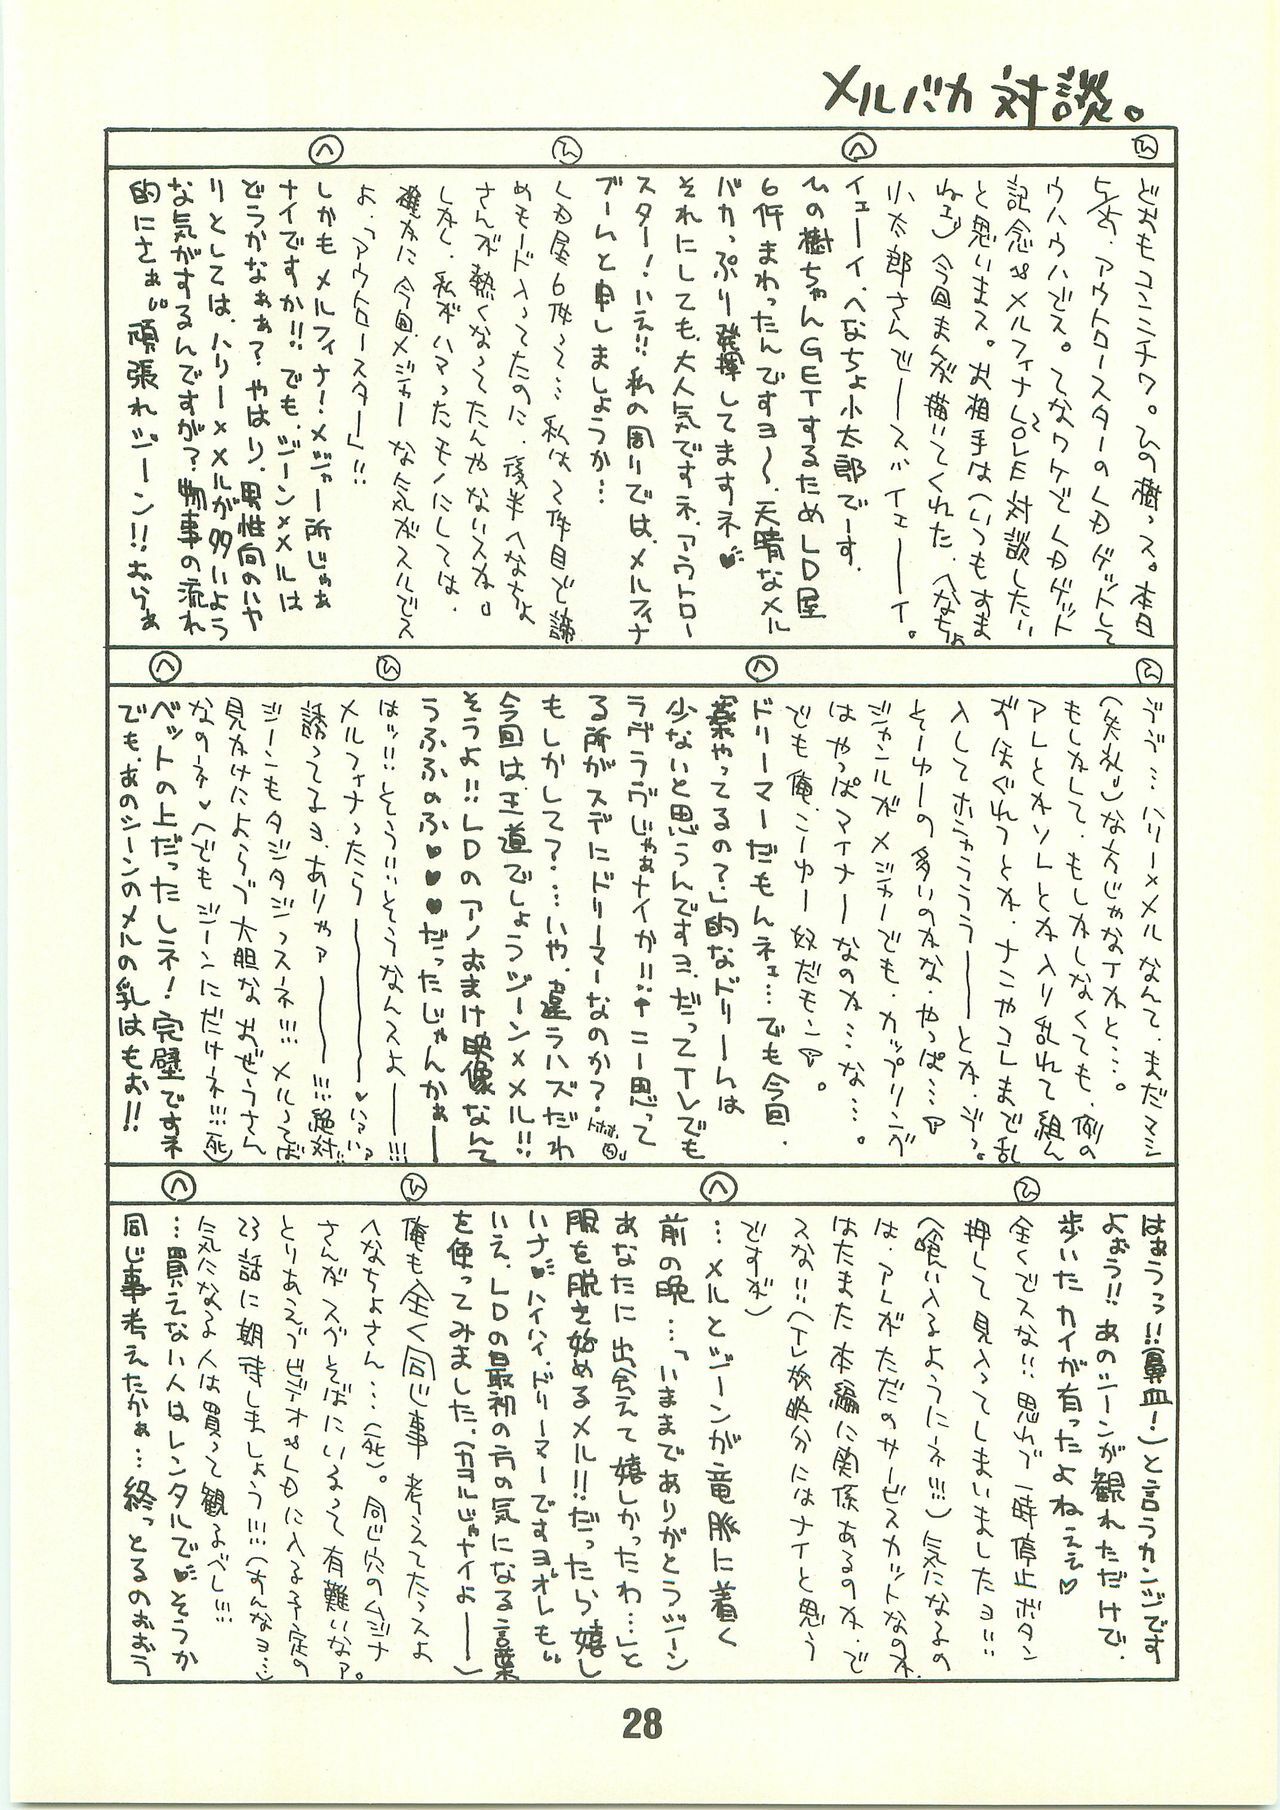 メルバカ対談。
ひ
どおもコンニチワ。ひの樹っス。本日
5/25、アウトロースターのLDゲットして
ウハウハどス。てなワケどLDゲット
記念&メルフィナLOVE対談したい
と思いまス。お相手は(いつもすま
ねェ)今回まんが描いてくれた、へなちょ
小太郎さんでーースバイェーーイ。
へ
イェーイ、へなちょ小太郎でーす。
ひの樹ちゃんGETするためLD屋
6件まわったんですヨ〜、天晴なメル
バカっぷり発揮してますネ♥
それにしても、大人気ですネ、アウトロー
スター!いえ!!私の周りでは、メルフィナ
ブームと申しましょうか…
ひ
LD屋6件って…私は2件目で諦
めモード入ってたのに、後半へなちょ
さんが熱くなってたんやないスか。
しかし、私がハマったモノにしては、
確かに今回、メジャーな気がスルでス
よ、「アウトロースター」!!
へ
しかもメルフィナ!メジャー所じゃぁ
ナイですか!!でも、ジーン×メルは
どうかなぁぁ?やはり、男性向のハヤ
リとしては、ハリー×メルが多いよう
な気がするんですが?物事の流れ
的にさぁ…頑張れジーン!!おらぁ
ひ
うづ…ハリー×メルなんて、まだマシ
(失礼)な方じゃなイかと…。
もしかして、もしかしなくても、例の
アレとかソレとか入り乱れて組ん
ずほぐれつとか、ナニやコレまで乱
入してホうゃううう——とか、ジっ。
そーゆーの多いのかな、やっぱ…。
ジャンルがメジャーでも、カップリング
はやっぱマイナーなのか…な…。
でも俺、こーゆー奴だモン。
へ
ドリーマーだもんネェ…でも今回、
「薬やってるの?」的なドリームは
少ないと思うんですヨ、だってTレでも
ラヴラヴじゃぁナイか!!←こー思って
る所がスデにドリーマーなのか?
もしかして?…いや、違うハズだわ
今回は王道でしょうジーン×メル!!
そうよ!!LDのアノおまけ映像なんて
うふふのふ♥♥♥だったじゃんかぁー
ひ
はッ!!そう!!そうなんスよーー!!!
メルフィナったらーーーー♥
誘ってるヨ、ありゃァーーー!!!絶対!!
ジーンもタジタジっスネ!!!メルってば
見かけによらづ大胆なおぜうさん
なのネ♥(でもジーンにだけネ!!!死)
へ
ベットの上だったしネ!完璧ですネ
でも、あのシーンのメルの乳はもお!!
はぁうっっ!!(鼻血ー!)と言うカンジです
よぉう!!あのシーンが観れただけで、
歩いたカイが有ったよねぇぇ♡
ひ
全くでスな!!思わづ一時停止ボタン
押して見入ってしまいましたヨ!!
(喰い入るようにネ!!!)気になるの
は、アレがただのサービスカットなのか、
はたまた本編に関係あるのか、で
スな!!(Tレ放映分にはナイと思う
ですが)
へ
…メルとジーンが竜脈に着く
前の晩…「いままでありがとうジーン
あなたに出会えて嬉しかったわ…」と
服を脱ぎ始めるメル!!だったら嬉し
いナ♥ハイハイ、ドリーマーですヨオレもぉ
いえ、LDの最初の方の気になる言葉
を使ってみました。(カヨルじゃナイよーー)
ひ
俺も全く同じ事考えてたっスよ
へなちょさん…(死)。同じ穴のムジナ
さんがスグそばにいるって有難いなァ。
とりあえづビデオ&LDに入る予定の
23話に期待しましょう!!!(おんなヨ…)
気になる人は買って観るべし!!!
へ
…買えない人はレンタルで♥そうか
同じ事考えたかぁ…終っとるのおおう
28